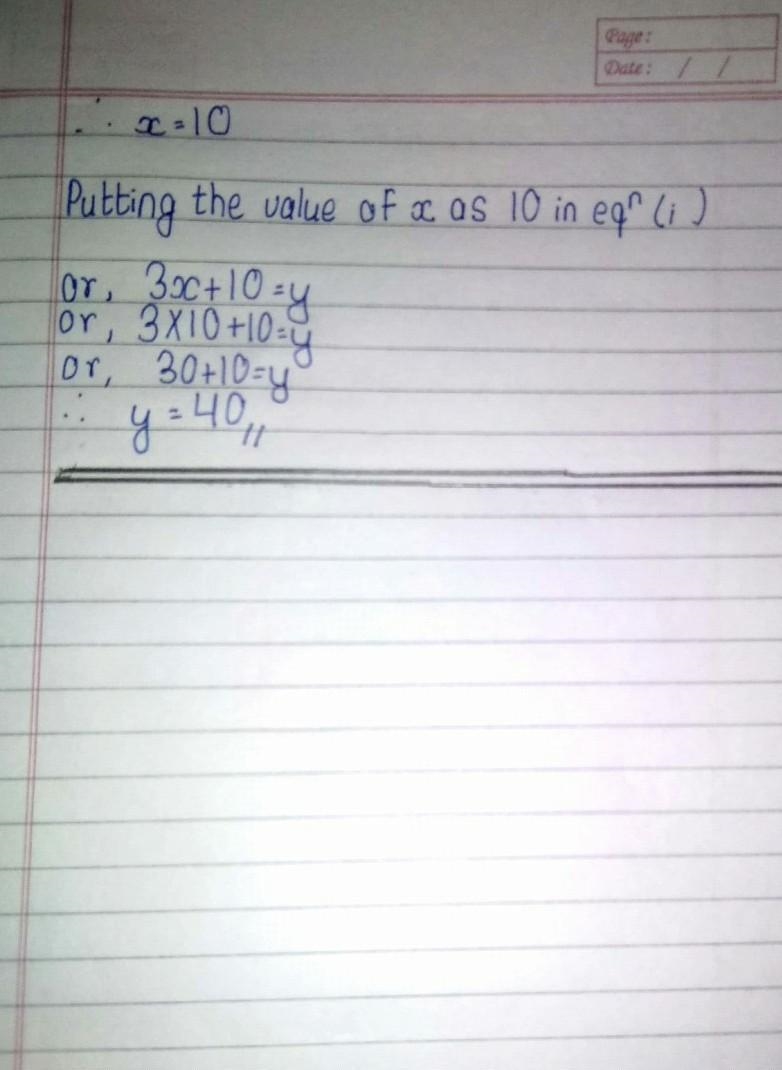 Page:
Date: / /
∴ x=10
Putting the value of x as 10 in eqⁿ (i)
or, 3x+10=y
or, 3X10+10=y
or, 30+10=y
∴ y=40,,